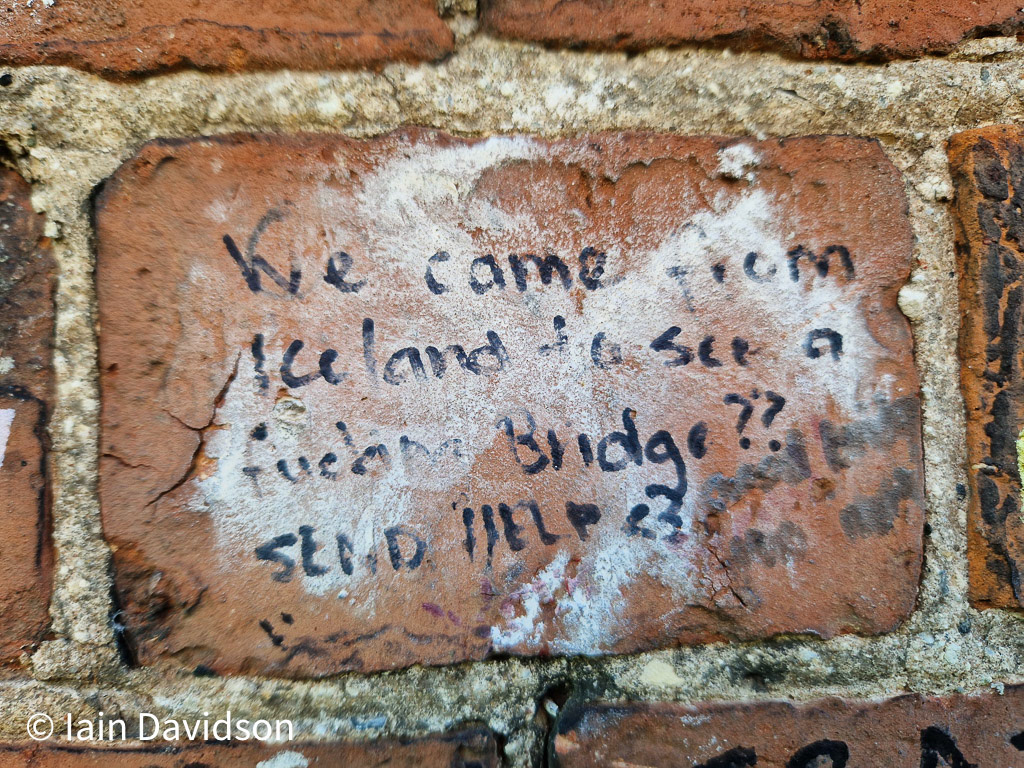 We came from
Iceland to see a
fucking Bridge??
SEND HELP <3
© Iain Davidson